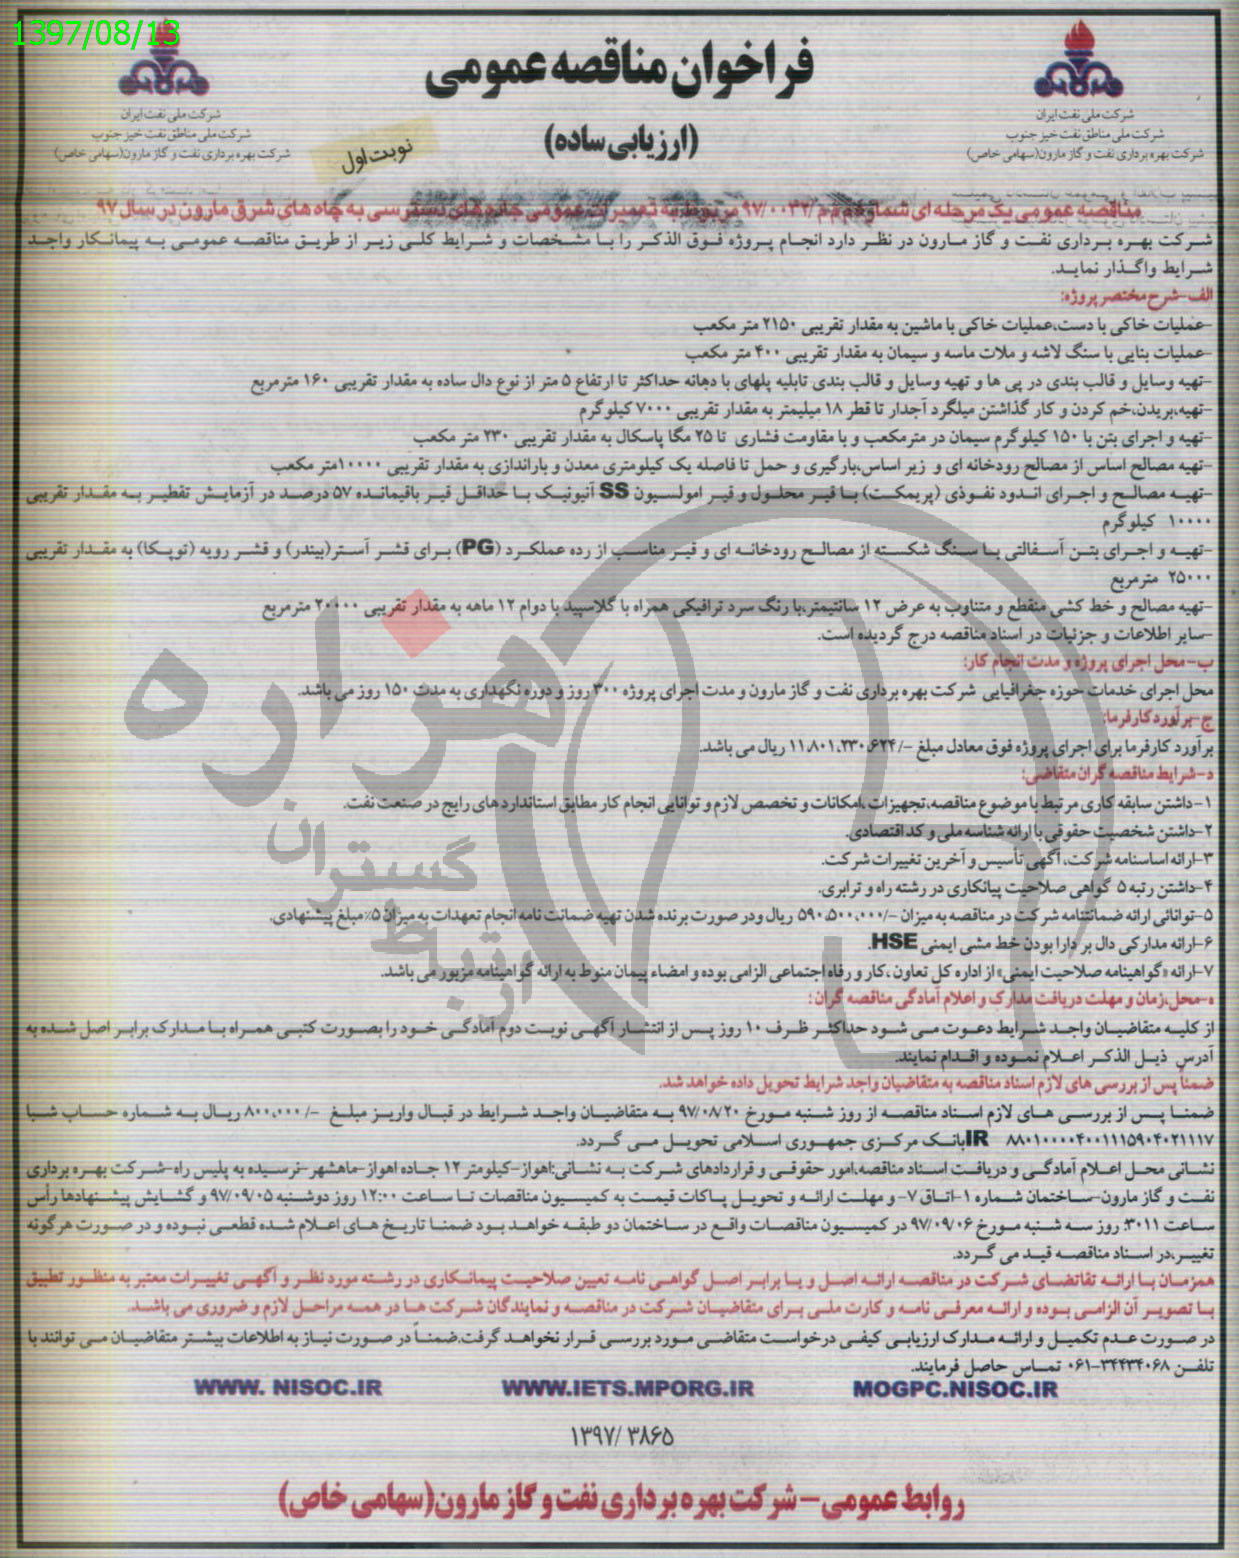 1397/08/13
فراخوان مناقصه عمومی
(ارزیابی ساده)
نوبت اول
شرکت ملی نفت ایران
شرکت ملی مناطق نفت خیز جنوب
شرکت بهره برداری نفت و گاز مارون(سهامی خاص)
شرکت ملی نفت ایران
شرکت ملی مناطق نفت خیز جنوب
شرکت بهره برداری نفت و گاز مارون(سهامی خاص)
مناقصه عمومی یک مرحله ای شماره م م م/۹۷/۰۰۳۲ مربوط به تعمیرات عمومی جاده های دسترسی به چاه های شرق مارون در سال ۹۷
شرکت بهره برداری نفت و گاز مارون در نظر دارد انجام پروژه فوق الذکر را با مشخصات و شرایط کلی زیر از طریق مناقصه عمومی به پیمانکار واجد
شرایط واگذار نماید.
الف-شرح مختصر پروژه:
-عملیات خاکی با دست،عملیات خاکی با ماشین به مقدار تقریبی ۲۱۵۰ متر مکعب
-عملیات بنایی با سنگ لاشه و ملات ماسه و سیمان به مقدار تقریبی ۴۰۰ متر مکعب
-تهیه وسایل و قالب بندی در پی ها و تهیه وسایل و قالب بندی تابلیه پلهای با دهانه حداکثر تا ارتفاع ۵ متر از نوع دال ساده به مقدار تقریبی ۱۶۰ مترمربع
-تهیه،بریدن،خم کردن و کار گذاشتن میلگرد آجدار تا قطر ۱۸ میلیمتر به مقدار تقریبی ۷۰۰۰ کیلوگرم
-تهیه و اجرای بتن با ۱۵۰ کیلوگرم سیمان در مترمکعب و با مقاومت فشاری تا ۲۵ مگا پاسکال به مقدار تقریبی ۲۳۰ متر مکعب
-تهیه مصالح اساس از مصالح رودخانه ای و زیر اساس،بارگیری و حمل تا فاصله یک کیلومتری معدن و باراندازی به مقدار تقریبی ۱۰۰۰۰متر مکعب
-تهیه مصالح و اجرای اندود نفوذی (پریمکت) با قیر محلول و قیر امولسیون SS آنیونیک با حداقل قیر باقیمانده ۵۷ درصد در آزمایش تقطیر به مقدار تقریبی
۱۰۰۰۰ کیلوگرم
-تهیه و اجرای بتن آسفالتی با سنگ شکسته از مصالح رودخانه ای و قیر مناسب از رده عملکرد (PG) برای قشر آستر(بیندر) و قشر رویه (توپکا) به مقدار تقریبی
۲۵۰۰۰ مترمربع
-تهیه مصالح و خط کشی منقطع و متناوب به عرض ۱۲ سانتیمتر،با رنگ سرد ترافیکی همراه با گلاسپید با دوام ۱۲ ماهه به مقدار تقریبی ۲۰۰۰۰ مترمربع
-سایر اطلاعات و جزئیات در اسناد مناقصه درج گردیده است.
ب-محل اجرای پروژه و مدت انجام کار:
محل اجرای خدمات حوزه جغرافیایی شرکت بهره برداری نفت و گاز مارون و مدت اجرای پروژه ۳۰۰ روز و دوره نگهداری به مدت ۱۵۰ روز می باشد.
ج-برآورد کارفرما:
برآورد کارفرما برای اجرای پروژه فوق معادل مبلغ -/۱۱،۸۰۱،۲۳۰،۶۲۴ ریال می باشد.
د-شرایط مناقصه گران متقاضی:
۱-داشتن سابقه کاری مرتبط با موضوع مناقصه،تجهیزات ،امکانات و تخصص لازم و توانایی انجام کار مطابق استانداردهای رایج در صنعت نفت.
۲-داشتن شخصیت حقوقی با ارائه شناسه ملی و کد اقتصادی.
۳-ارائه اساسنامه شرکت، آگهی تأسیس و آخرین تغییرات شرکت.
۴-داشتن رتبه ۵ گواهی صلاحیت پیمانکاری در رشته راه و ترابری.
۵-توانائی ارائه ضمانتنامه شرکت در مناقصه به میزان -/۵۹۰،۵۰۰،۰۰۰ ریال ودر صورت برنده شدن تهیه ضمانت نامه انجام تعهدات به میزان ۵٪ مبلغ پیشنهادی.
۶-ارائه مدارکی دال بر دارا بودن خط مشی ایمنی HSE.
۷-ارائه «گواهینامه صلاحیت ایمنی» از اداره کل تعاون ،کار و رفاه اجتماعی الزامی بوده و امضاء پیمان منوط به ارائه گواهینامه مزبور می باشد.
ه-محل،زمان و مهلت دریافت مدارک و اعلام آمادگی مناقصه گران :
از کلیه متقاضیان واجد شرایط دعوت می شود حداکثر ظرف ۱۰ روز پس از انتشار آگهی نوبت دوم آمادگی خود را بصورت کتبی همراه با مدارک برابر اصل شده به
آدرس ذیل الذکر اعلام نموده و اقدام نمایند.
ضمناً پس از بررسی های لازم اسناد مناقصه به متقاضیان واجد شرایط تحویل داده خواهد شد.
ضمنا پس از بررسی های لازم اسناد مناقصه از روز شنبه مورخ ۹۷/۰۸/۲۰ به متقاضیان واجد شرایط در قبال واریز مبلغ -/۸۰۰،۰۰۰ ریال به شماره حساب شبا
IR ۸۸۰۱۰۰۰۰۴۰۰۱۱۱۵۹۰۴۰۲۱۱۱۷بانک مرکزی جمهوری اسلامی تحویل می گردد.
نشانی محل اعلام آمادگی و دریافت اسناد مناقصه،امور حقوقی و قراردادهای شرکت به نشانی:اهواز-کیلومتر ۱۲ جاده اهواز-ماهشهر-نرسیده به پلیس راه-شرکت بهره برداری
نفت و گاز مارون-ساختمان شماره ۱-اتاق ۷- و مهلت ارائه و تحویل پاکات قیمت به کمیسیون مناقصات تا ساعت ۱۲:۰۰ روز دوشنبه ۹۷/۰۹/۰۵ و گشایش پیشنهادها رأس
ساعت ۳۰۱۱: روز سه شنبه مورخ ۹۷/۰۹/۰۶ در کمیسیون مناقصات واقع در ساختمان دو طبقه خواهد بود ضمنا تاریخ های اعلام شده قطعی نبوده و در صورت هرگونه
تغییر،در اسناد مناقصه قید می گردد.
همزمان با ارائه تقاضای شرکت در مناقصه ارائه اصل و یا برابر اصل گواهی نامه تعیین صلاحیت پیمانکاری در رشته مورد نظر و آگهی تغییرات معتبر به منظور تطبیق
با تصویر آن الزامی بوده و ارائه معرفی نامه و کارت ملی برای متقاضیان شرکت در مناقصه و نمایندگان شرکت ها در همه مراحل لازم و ضروری می باشد.
در صورت عدم تکمیل و ارائه مدارک ارزیابی کیفی درخواست متقاضی مورد بررسی قرار نخواهد گرفت.ضمناً در صورت نیاز به اطلاعات بیشتر متقاضیان می توانند با
تلفن ۳۴۴۳۴۰۶۸-۰۶۱ تماس حاصل فرمایند.
MOGPC.NISOC.IR WWW.IETS.MPORG.IR WWW. NISOC.IR
۱۳۹۷/ ۳۸۶۵
روابط عمومی - شرکت بهره برداری نفت و گاز مارون(سهامی خاص)
هزاره
گستران
ارتباط